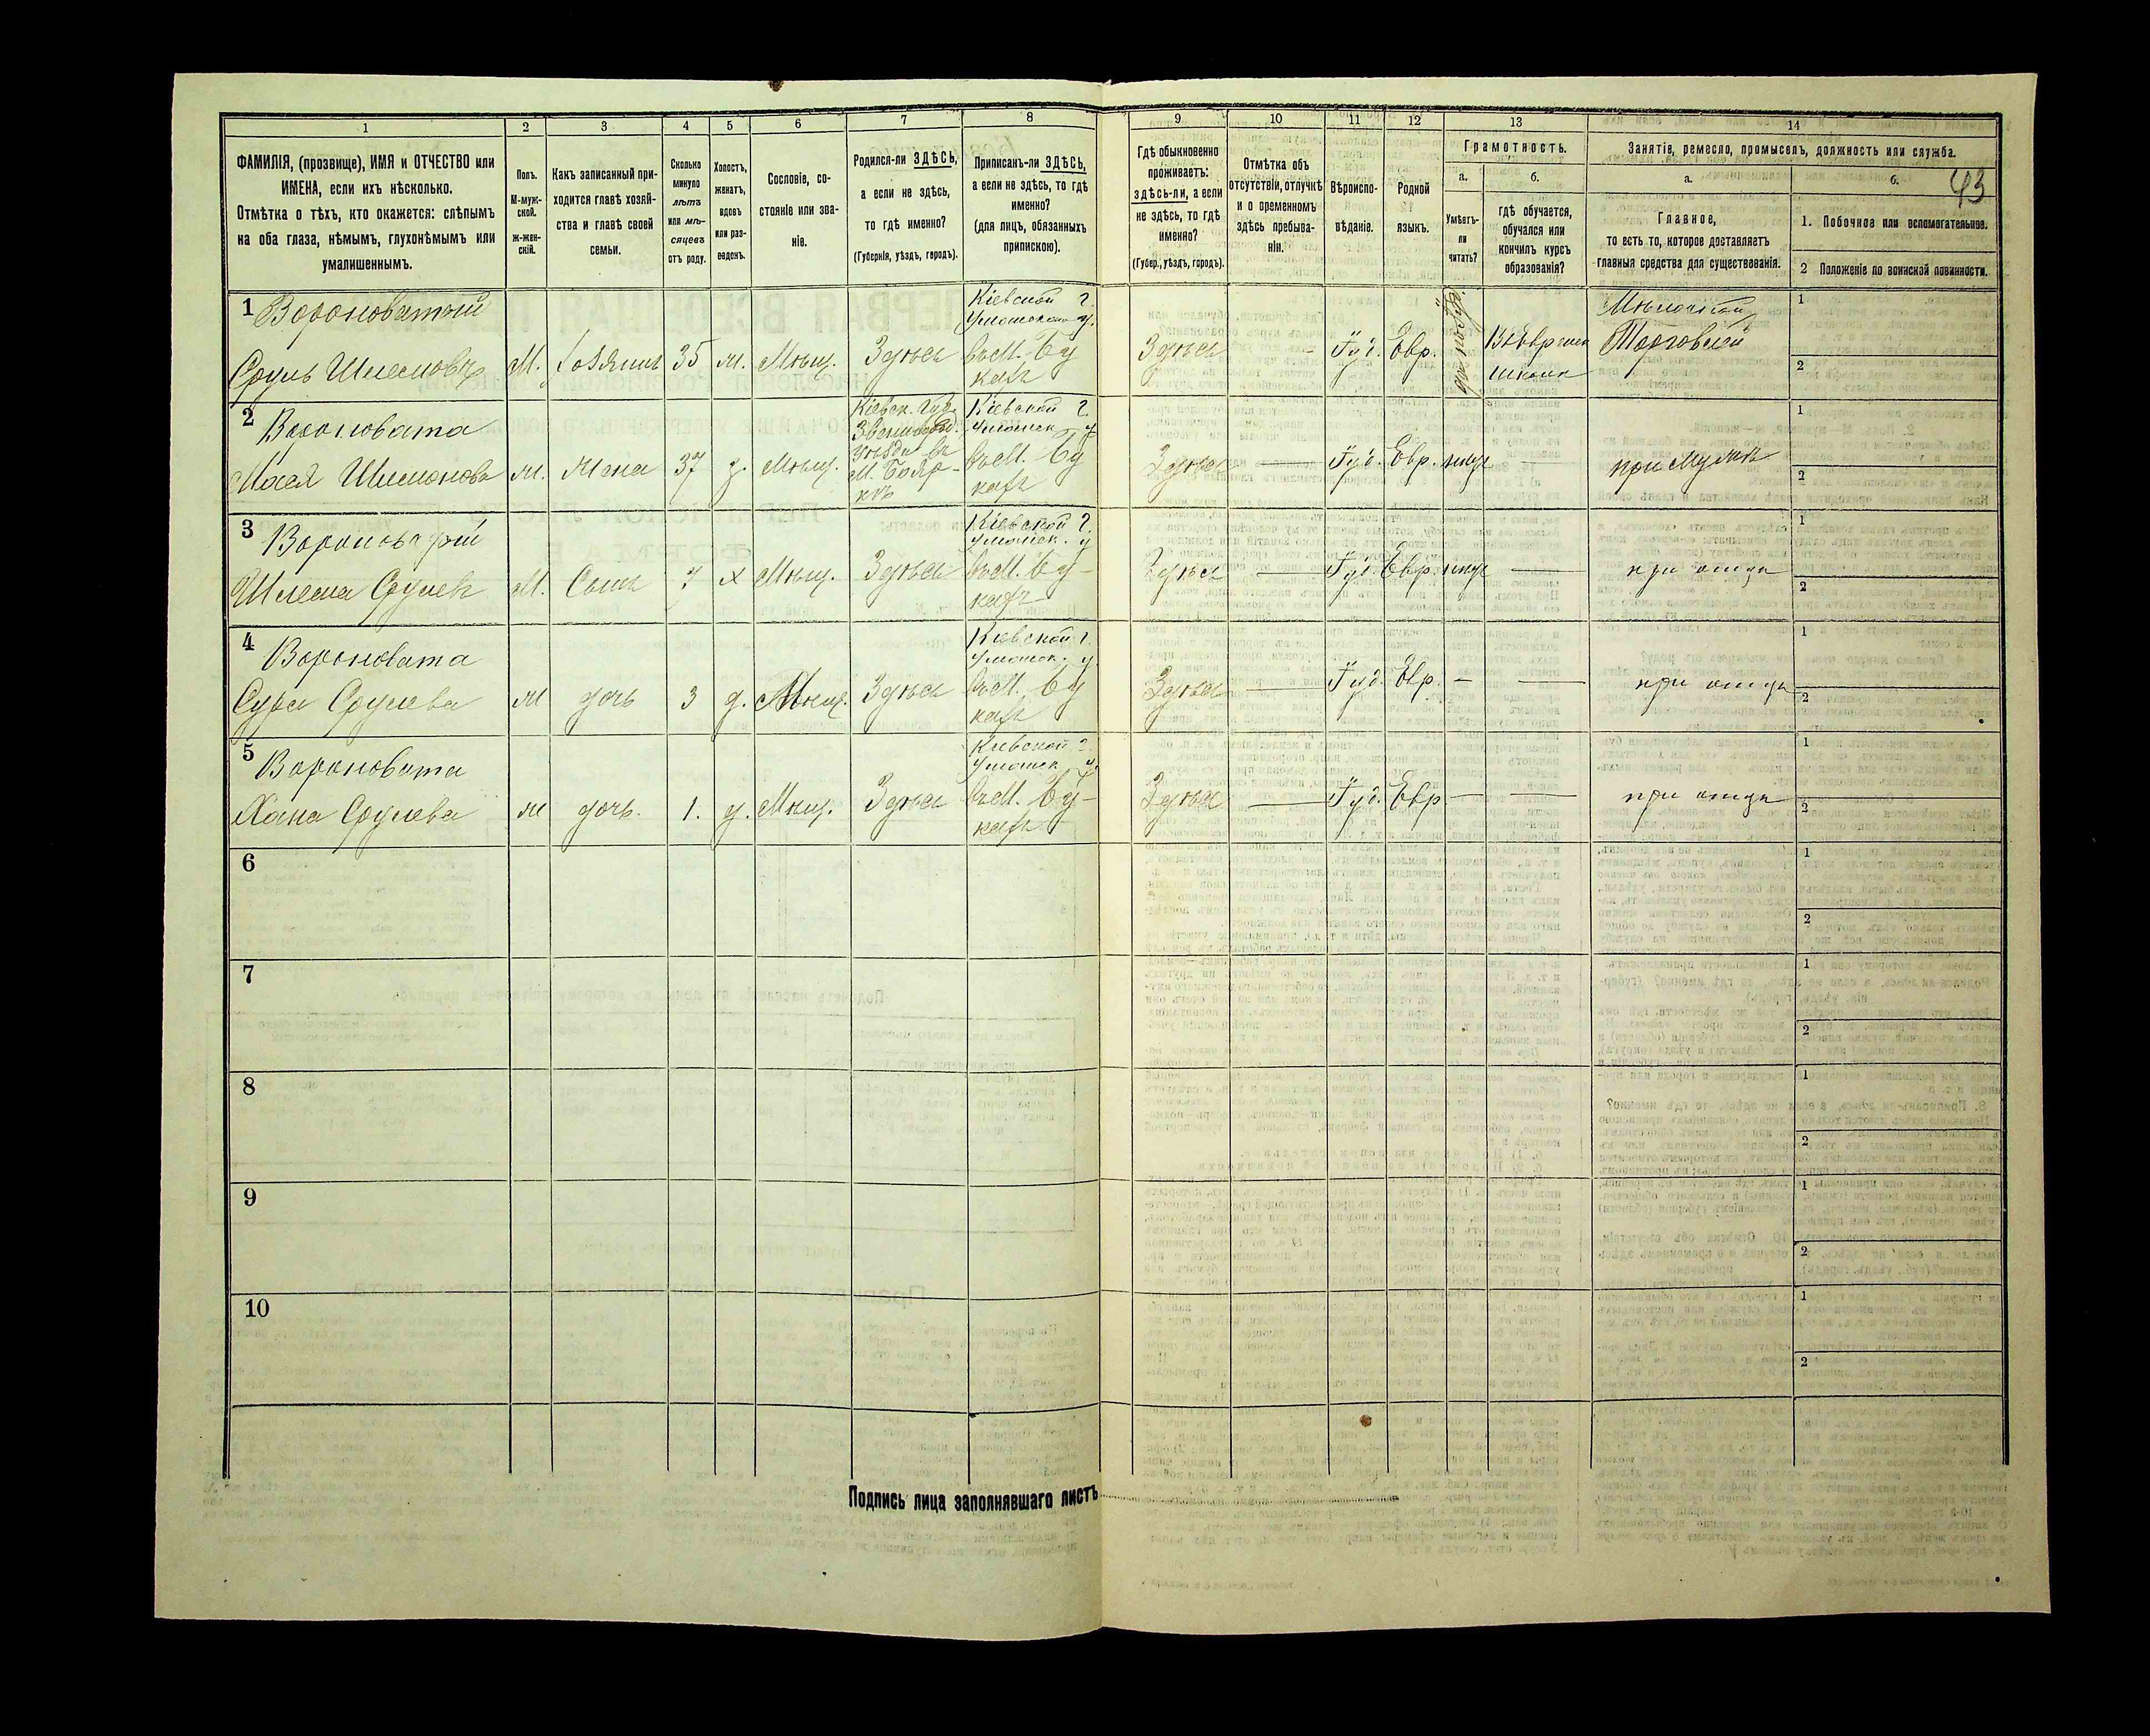 1
2
3
4
5
6
7
8
9
10
11
12
13
14
ФАМИЛІЯ, (прозвище), ИМЯ и ОТЧЕСТВО или
ИМЕНА, если ихъ нѣсколько.
Отмѣтка о тѣхъ, кто окажется: слѣпымъ
на оба глаза, нѣмымъ, глухонѣмымъ или
умалишеннымъ.
Полъ.
М-муж-
ской.
ж-жен-
скій.
Какъ записанный при-
ходится главѣ хозяй-
ства и главѣ своей
семьи.
Сколько
минуло
лѣтъ
или мѣ-
сяцевъ
отъ роду.
Холостъ,
женатъ,
вдовъ
или раз-
веденъ.
Сословіе, со-
стояніе или зва-
ніе.
Родился-ли ЗДѢСЬ,
а если не здѣсь,
то гдѣ именно?
(Губернія, уѣздъ, городъ).
Приписанъ-ли ЗДѢСЬ,
а если не здѣсь, то гдѣ
именно?
(для лицъ, обязанныхъ
припискою).
Гдѣ обыкновенно
проживаетъ:
здѣсь-ли, а если
не здѣсь, то гдѣ
именно?
(Губер., уѣздъ, городъ).
Отмѣтка объ
отсутствіи, отлучкѣ
и о временномъ
здѣсь пребыва-
ніи.
Вѣроиспо-
вѣданіе.
Родной
языкъ.
Грамотность.
а.
б.
Умѣетъ-
ли
читать?
гдѣ обучается,
обучался или
кончилъ курсъ
образованія?
Занятіе, ремесло, промыселъ, должность или служба.
а.
б.
43
Главное,
то есть то, которое доставляетъ
главныя средства для существованія.
1. Побочное или вспомогательное.
2 Положеніе по воинской повинности.
1 Вороноватый
Сруль Шлемовъ М. Хозяинъ 35 ж. Мѣщ. Здѣсь
Кіевской г.
Уманскаго у.
въ М. Бу
кахъ
Здѣсь - Іуд. Евр.
Въ Еврейск
школѣ
Мѣлочной
Торговлей
1
2
2 Вороновата
Мася Шимонова ж. жена 37 з. Мѣщ.
Кіевск. Губ.
уѣзда въ
М. Бояр-
кѣ
Кіевской г.
Уманск. у
въ М. Бу
кахъ
Здѣсь — Іуд. Евр. нѣтъ — при мужѣ
1
2
3 Вороноватый
Шлема Срулевъ М. Сынъ 7 х Мѣщ. Здѣсь
Кіевской г.
Уманск. у
въ М. Бу-
кахъ
Здѣсь — Іуд. Евр. нѣтъ — при отцѣ
1
2
4 Вороновата
Сура Срулева ж дочь 3 д. Мѣщ. Здѣсь
Кіевской г.
Уманск. у.
въ М. Бу
кахъ
Здѣсь — Іуд. Евр. — — при отцѣ
1
2
5 Вороновата
Хана Срулева ж дочь. 1. д. Мѣщ. Здѣсь
Кіевской г.
Уманск у.
въ М. Бу-
кахъ
Здѣсь — Іуд. Евр — — при отцѣ
1
2
6
1
2
7
1
2
8
1
2
9
1
2
10
1
2
Подпись лица заполнявшаго листъ